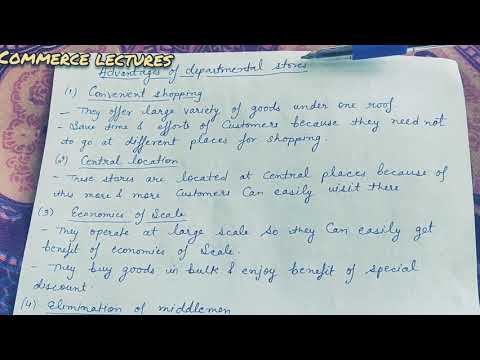 COMMERCE LECTURES
Advantages of departmental stores
(1) Convenient shopping
- They offer large variety of goods under one roof.
- Save time & efforts of Customers because they need not
to go at different places for shopping.
(2) Central location
- These stores are located at Central places because of
this more & more Customers Can easily visit there
(3) Economies of Scale
- They operate at large scale so they Can easily get
benefit of economies of Scale.
- They buy goods in bulk & enjoy benefit of special
discount.
(4) Elimination of middlemen